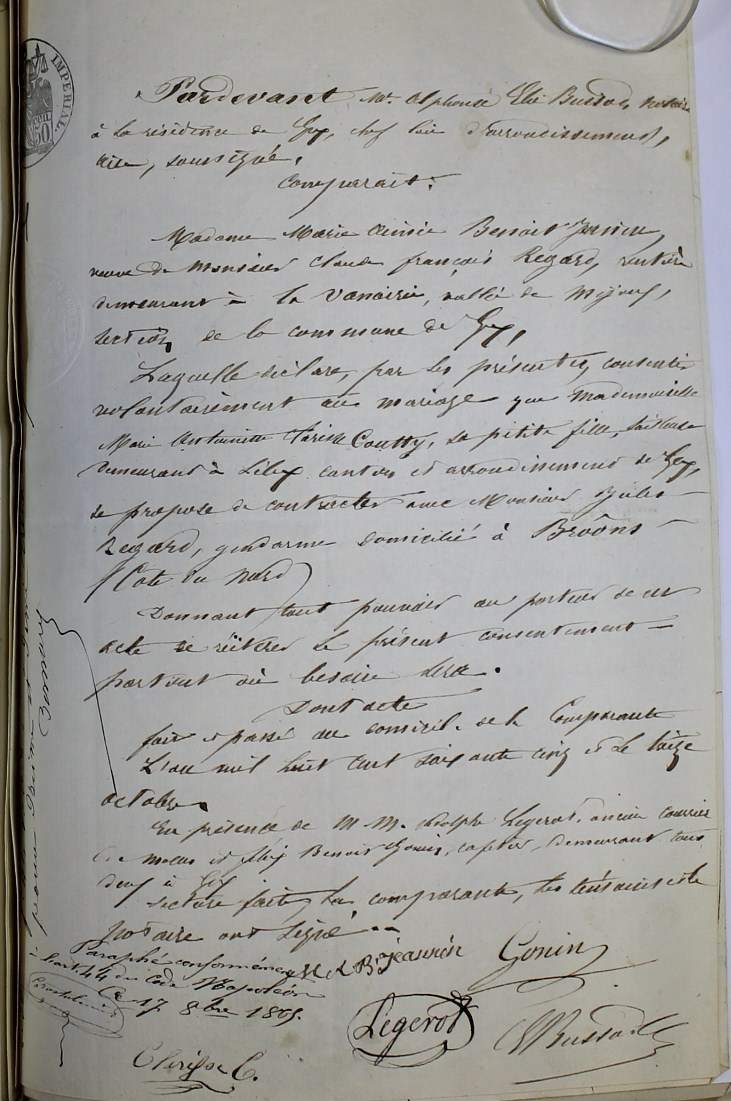 IMPERIAL
50
Pardevant Me Alphonse Elie Bussod, notaire
à la résidence de Gex, chef lieu d'arrondissement,
Ain, soussigné,
Comparait:
Madame Marie Aimée Benoit Jeannin,
veuve de Monsieur Claude françois Regard, rentière
demeurant à la Vanairie, vallée de Mijoux,
section de la commune de Gex,
Laquelle déclare, par ces présentes, consentir
volontairement au mariage que Mademoiselle
Marie Antoinette Clarisse Coutty, sa petite fille, tailleuse
demeurant à Lélex canton et arrondissement de Gex,
se propose de contracter avec Monsieur Jules
Regard, gendarme domicilié à Broôns
(Cote du Nord)
Donnant tout pouvoir au porteur de cet
acte de réitérer le présent consentement
partout où besoin sera.
Dont acte
fait et passé au domicile de la Comparante
L'an mil huit cent soixante cinq et le seize
octobre.
En présence de M M. Adolphe Legerot, ancien courrier
de malles et félix Benoit Gonin, cafetier, demeurant tous
deux à Gex
Lecture faite, la comparante, les témoins et le
notaire ont signé.
M A B Jeannin Gonin
Paraphé conformément
à l'art 44 du Code Napoléon
Ce 17 8bre 1865.
Legerot
Bussod
Clarisse C.